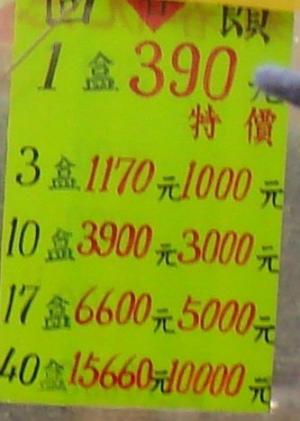 回
1 盒 390 元
特價
3 盒 1170 元 1000 元
10 盒 3900 元 3000 元
17 盒 6600 元 5000 元
40 盒 15660 元 10000 元